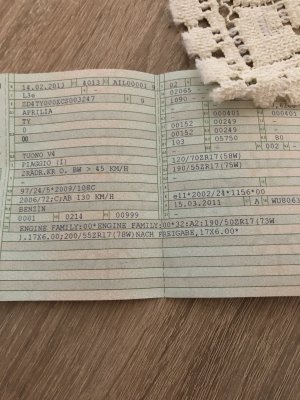 14.02.2013 4013 AIL00001 9
L3e -
ZD4TY000ZCS003247 9
APRILIA
TY
0
00
TUONO V4
PIAGGIO (I)
ZRÄDR.KR O. BW > 45 KM/H
-
97/24/5*2009/108C
2006/72;C;AB 130 KM/H
BENZIN
0001 0214 00999
02
02065
1090
000401 000401
00152 00249
00152 00249
103 05750 80
002 -
120/70ZR17(58W)
190/55ZR17(75W)
-
e11*2002/24*1156*00
15.03.2011 A
ENGINE FAMILY:00*ENGINE FAMILY:00*32:A2:190/50ZR17(73W
).17X6.00;200/55ZR17(78W)NACH FREIGABE,17X6.00*